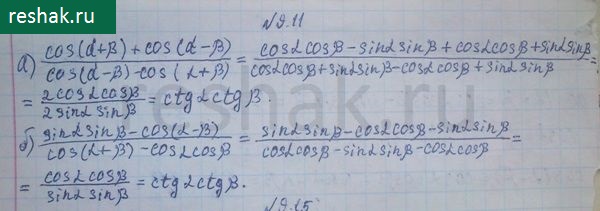 reshak.ru
№9.11
а) (cos(α+β)+cos(α-β))/(cos(α-β)-cos(α+β)) = (cosαcosβ-sinαsinβ+cosαcosβ+sinαsinβ)/(cosαcosβ+sinαsinβ-cosαcosβ+sinαsinβ) =
= (2cosαcosβ)/(2sinαsinβ) = ctgαctgβ.
б) (sinαsinβ-cos(α-β))/(cos(α+β)-cosαcosβ) = (sinαsinβ-cosαcosβ-sinαsinβ)/(cosαcosβ-sinαsinβ-cosαcosβ) =
= (cosαcosβ)/(sinαsinβ) = ctgαctgβ.